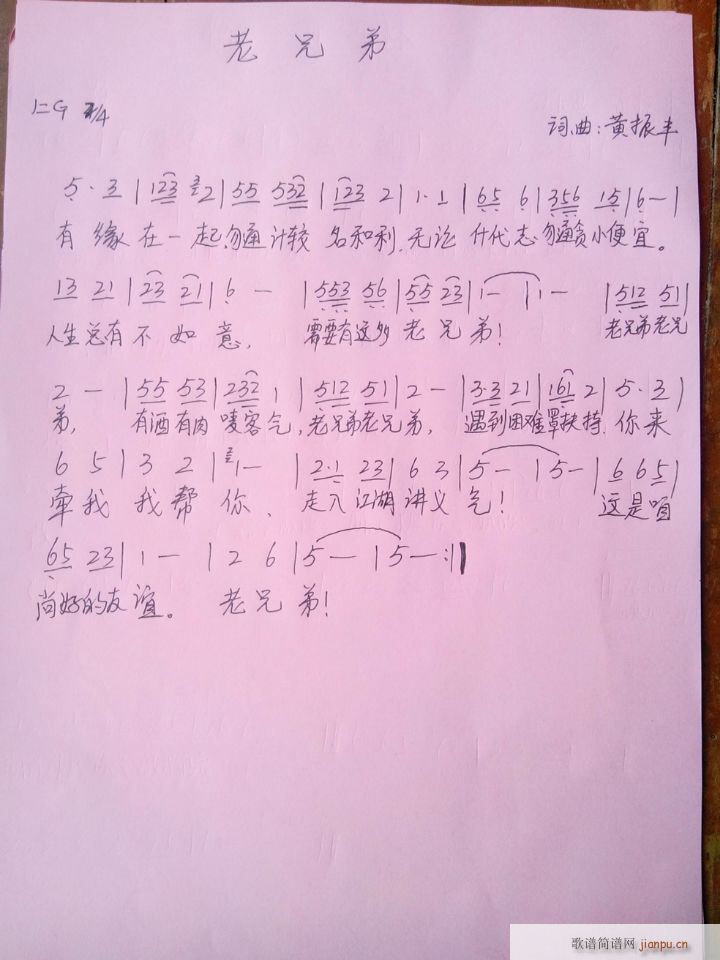 老兄弟
1=G 2/4
词、曲：黄振丰
5·3|123 32|55 532|123 2|1·1|65 6|356 15|6-|
有缘在一起，勿通计较名和利，无论什代志勿通贪小便宜。
13 21|23 21|6 -|553 56|55 23|1-|1-|512 51|
人生总有不如意，需要有这多老兄弟！老兄弟老兄
2 -|55 53|232 1|512 51|2 -|3·3 21|161 2|5·3|
弟，有酒有肉唛客气，老兄弟老兄弟，遇到困难罩扶持，你来
6 5|3 2|21-|2·1 23|6 3|5-|5-|6 65|
牵我我帮你、走入江湖讲义气！这是咱
65 23|1 -|2 6|5-|5-:||
尚好的友谊。老兄弟！
歌谱简谱网
jianpu.cn